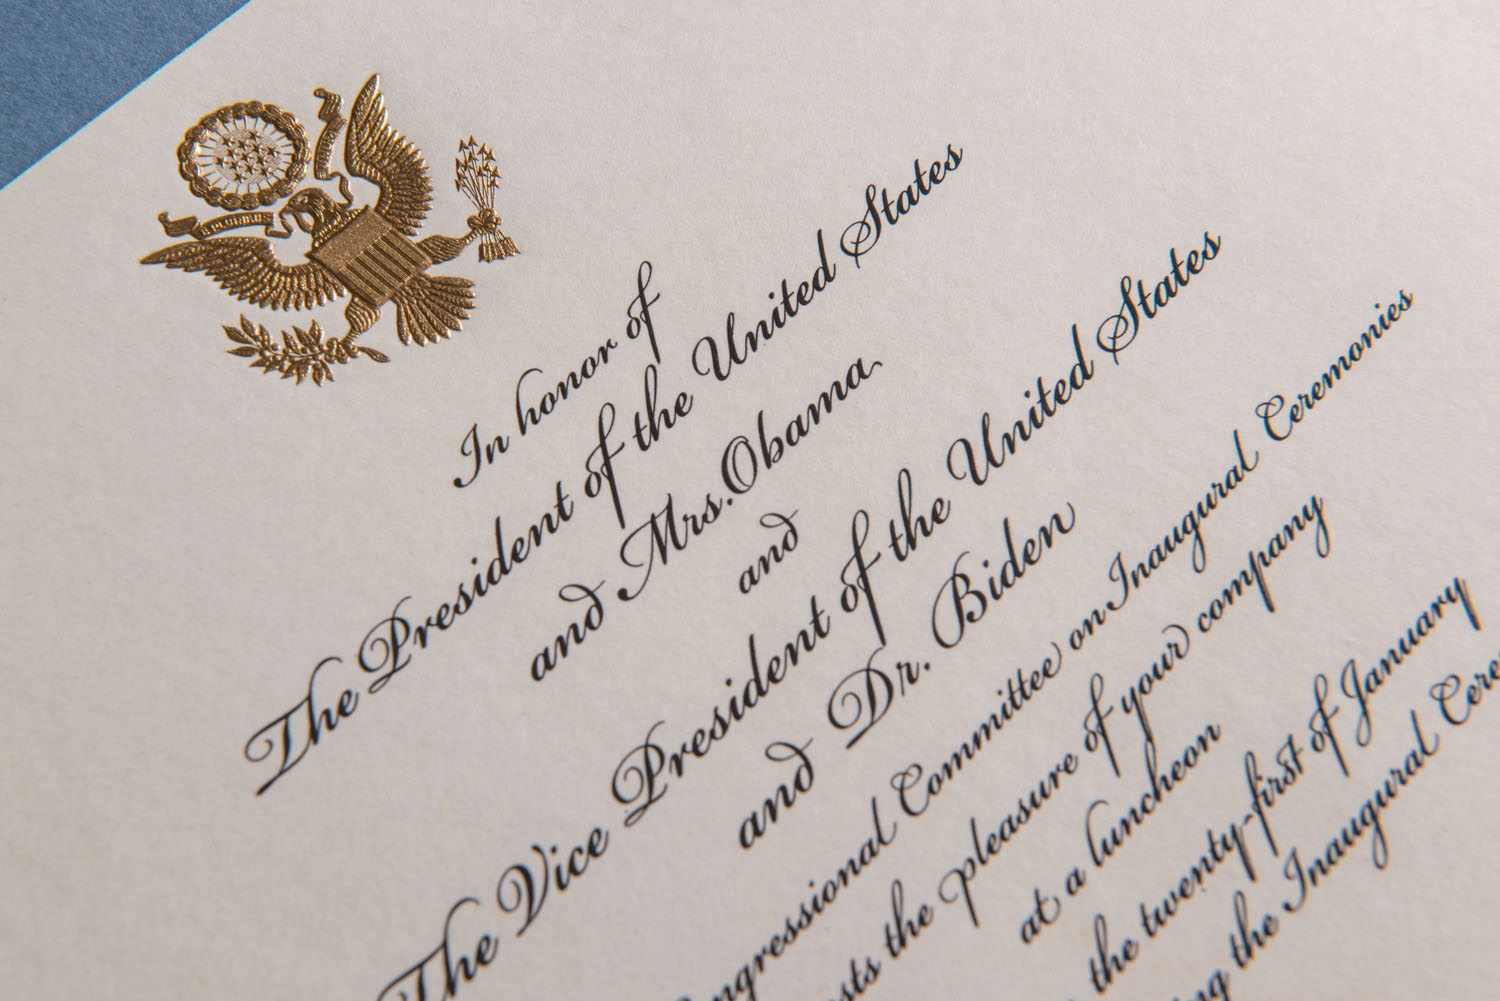 In honor of
The President of the United States
and Mrs. Obama
and
The Vice President of the United States
and Dr. Biden
Congressional Committee on Inaugural Ceremonies
the pleasure of your company
at a luncheon
the twenty-first of January
the Inaugural